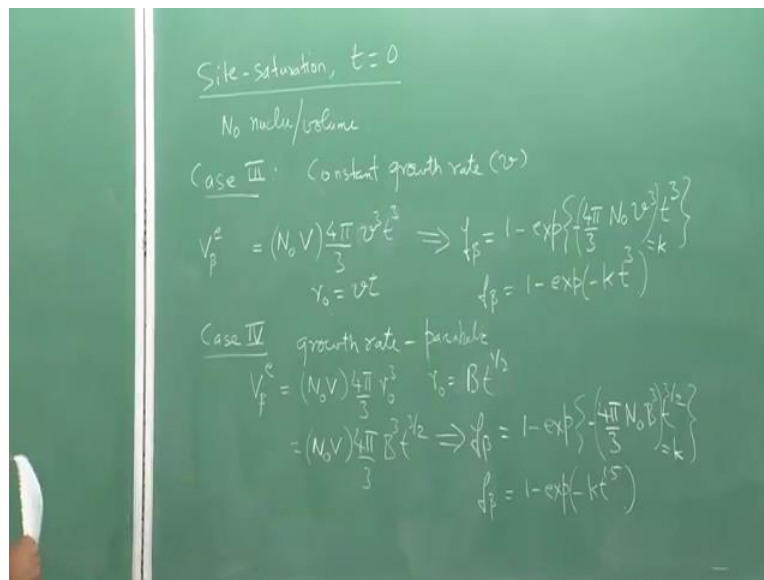 Site-saturation, t=0
N₀ nuclei/volume
Case III: Constant growth rate (v)
V_β^e = (N₀V) 4π/3 v³t³ ⟹ f_β = 1 - exp{-(4π/3 N₀v³)t³} =k
r₀ = vt f_β = 1 - exp(-kt³)
Case IV growth rate - parabolic
V_β^e = (N₀V) 4π/3 r₀³ r₀ = Bt^1/2
= (N₀V) 4π/3 B³t^3/2 ⟹ f_β = 1 - exp{-(4π/3 N₀B³)t^3/2} =k
f_β = 1 - exp(-kt^1.5)